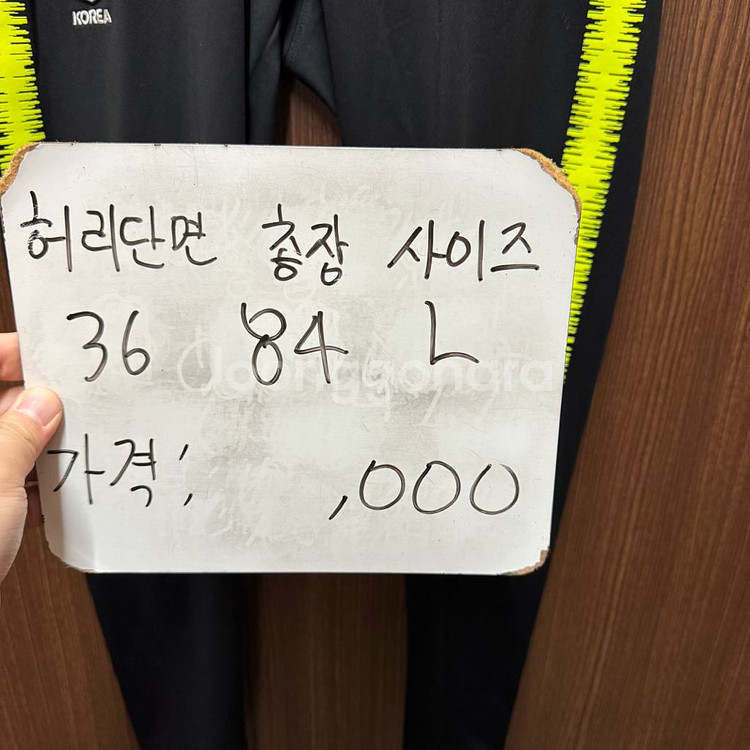 KOREA
허리단면 총장 사이즈
36 84 L
Joonggonara
가격; ,000